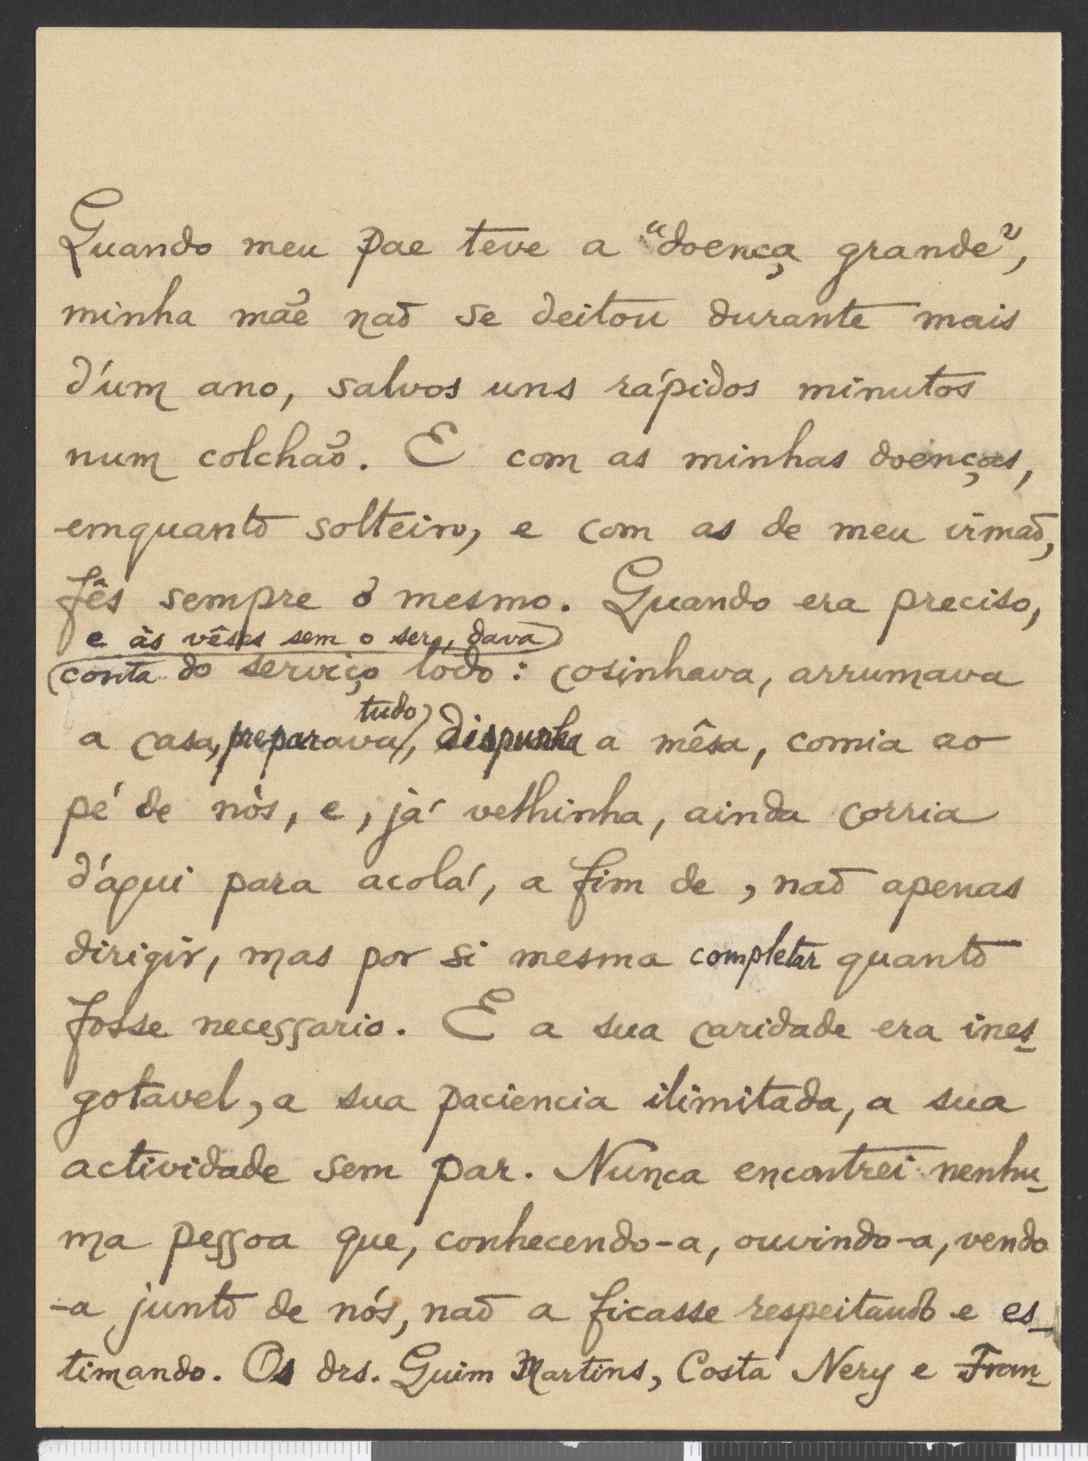 Quando meu pae teve a "doença grande",
minha mãe não se deitou durante mais
d'um ano, salvos uns rápidos minutos
num colchão. E com as minhas doenças,
emquanto solteiro, e com as de meu irmão,
fês sempre o mesmo. Quando era preciso,
e às vêses sem o ser, dava
conta do serviço todo: cosinhava, arrumava
tudo
a casa, preparava, dispunha a mêsa, comia ao
pé de nós, e, já velhinha, ainda corria
d'aqui para acolá, a fim de, não apenas
dirigir, mas por si mesma completar quanto
fosse necessario. E a sua caridade era ines-
gotavel, a sua paciencia ilimitada, a sua
actividade sem par. Nunca encontrei nenhu-
ma pessoa que, conhecendo-a, ouvindo-a, vendo
-a junto de nós, não a ficasse respeitando e es-
timando. Os drs. Guim Martins, Costa Nery e Fran-